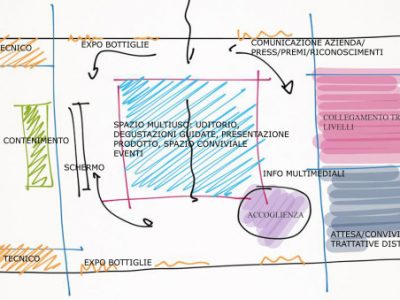 EXPO BOTTIGLIE
COMUNICAZIONE AZIENDA/
PRESS/PREMI/RICONOSCIMENTI
TECNICO
COLLEGAMENTO TR
LIVELLI
SPAZIO MULTIUSO: UDITORIO,
DEGUSTAZIONI GUIDATE, PRESENTAZIONE
PRODOTTO, SPAZIO CONVIVIALE
EVENTI
CONTENIMENTO
SCHERMO
INFO MULTIMEDIALI
ACCOGLIENZA
ATTESA/CONVIVI
TRATTATIVE DIST
TECNICO
EXPO BOTTIGLIE